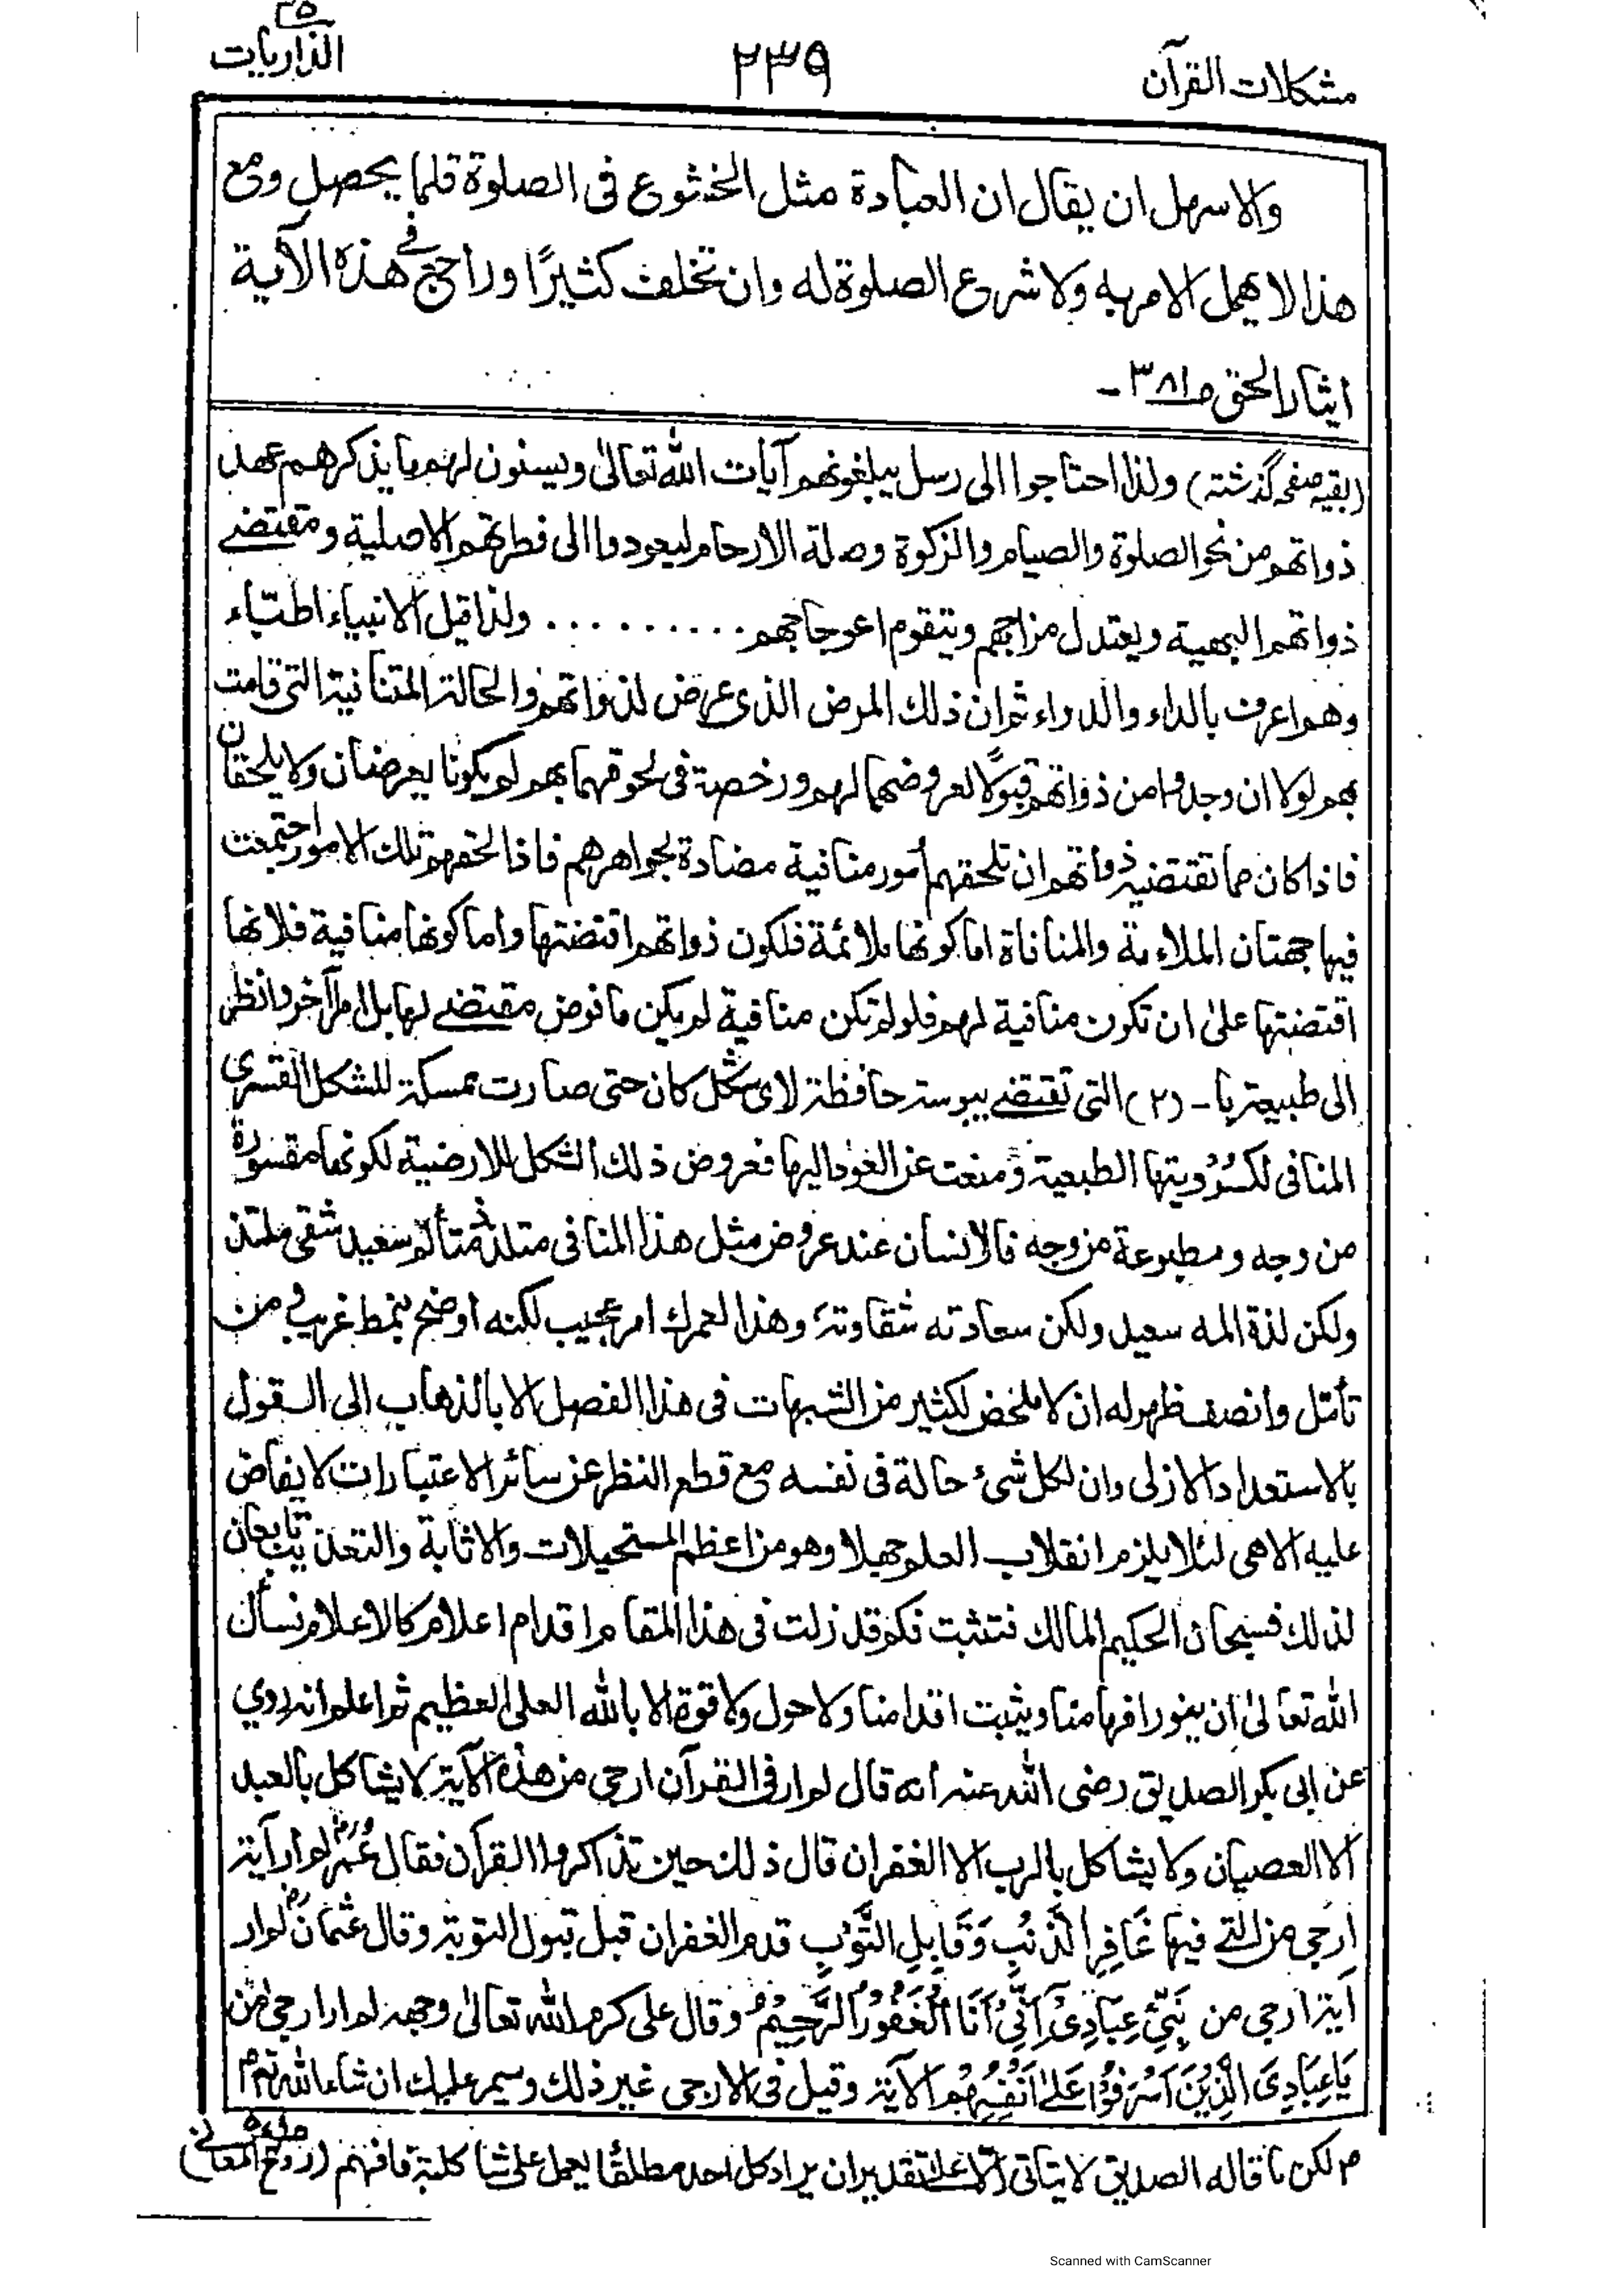 مشكلات القرآن
٢٣٩
٢٥
الذاريات
والاسهل ان يقال ان العبادة مثل الخشوع فى الصلوة قلما يحصل ومع
هذا لا يهمل الامر به ولا شرع الصلوة له وان تخلف كثيرًا وراجع فى هذه الآية
ايثار الحق ص٣٨١ -
(بقيه صفحه گذشته) ولذا احتاجوا الى رسل يبلغونهم آيات الله تعالى ويسنون لهم ما يذكرهم عهد
ذواتهم من نحو الصلوة والصيام والزكوة وصلة الارحام ليعودوا الى فطرتهم الاصلية ومقتضى
ذواتهم البهية ويعتدل مزاجهم ويتقوم اعوجاجهم .......... ولذا قيل الانبياء اطباء
وهم اعرف بالداء والدواء ثم ان ذلك المرض الذى عرض لذواتهم والحالة المتنافية التى قامت
بهم لولا ان وجدوا من ذواتهم قبولًا لعروضهما لهم ورخصة فى لحوقهما بهم لم يكونا يعرضان ولا يلحقان
فاذا كان مما تقتضيه ذواتهم ان تلحقهم أمور منافية مضادة لجواهرهم فاذا لحقهم تلك الامور اجتمعت
فيها جهتان الملاءمة والمنافاة اما كونها ملائمة فلكون ذواتهم اقتضتها واما كونها منافية فلانها
اقتضتها على ان تكون منافية لهم فلو لم تكن منافية لم يكن ما فرض مقتضى لها بل امرآ آخر وانظر
الى طبيعة يا - (٢) التى تقتضى يبوسة حافظة لاى شكل كان حتى صارت ممسكة للشكل القسرى
المنافى لكرويتها الطبعية ومنعت عن العود اليها فعروض ذلك الشكل للارضية لكونها مقسورة
من وجه ومطبوعة من وجه فالانسان عند عروض مثل هذا المنافى متلذذ متألم سعيد شقى ملتذ
ولكن لذة المه سعيد ولكن سعادته شقاوته وهذا لعمرك امر عجيب لكنه أوضح بنمط غريب ومن
تأمل وانصف ظهر له ان لا ملخص لكثير من الشبهات فى هذا الفصل الا بالذهاب الى القول
بالاستعداد الازلى وان لكل شئ حالة فى نفسه مع قطع النظر عن سائر الاعتبارات لا يفاض
عليه الا هى لئلا يلزم انقلاب العلم جهلا وهو من اعظم المستحيلات والاثابة والتعذيب تابعان
لذلك فسبحان الحكيم المالك فتثبت فكم قد زلت فى هذا المقام اقدام اعلام كالاعلام نسأل
الله تعالى ان ينور افهامنا ويثبت اقدامنا ولا حول ولا قوة الا بالله العلى العظيم ثم اعلم انه روي
عن ابى بكر الصديق رضى الله عنه أنه قال لم ار فى القرآن ارجى من هذه الآية لا يشاكل بالعبد
الا العصيان ولا يشاكل بالرب الا الغفران قال ذلك حين تذاكروا القرآن فقال عُمَرُ لم ار آية
ارجى من التى فيها غَافِرِ الذَّنْبِ وَقَابِلِ التَّوْبِ قدم الغفران قبل قبول التوبة وقال عثمان لم ار
اية ارجى من نَبِّئْ عِبَادِىْ اَنِّىْ اَنَا الْغَفُوْرُ الرَّحِيْمُ وقال على كرم الله تعالى وجهه لم ار ارجى من
يَا عِبَادِىَ الَّذِيْنَ اَسْرَفُوْا عَلٰى اَنْفُسِهِمْ الآية وقيل فى الارجى غير ذلك وسيمر عليك ان شاء الله تعم
م لكن ما قاله الصديق لا يتأتى الا على تقدير ان يراد كل احد مطلقًا يعمل على شاكلته فافهم (روح المعانى)